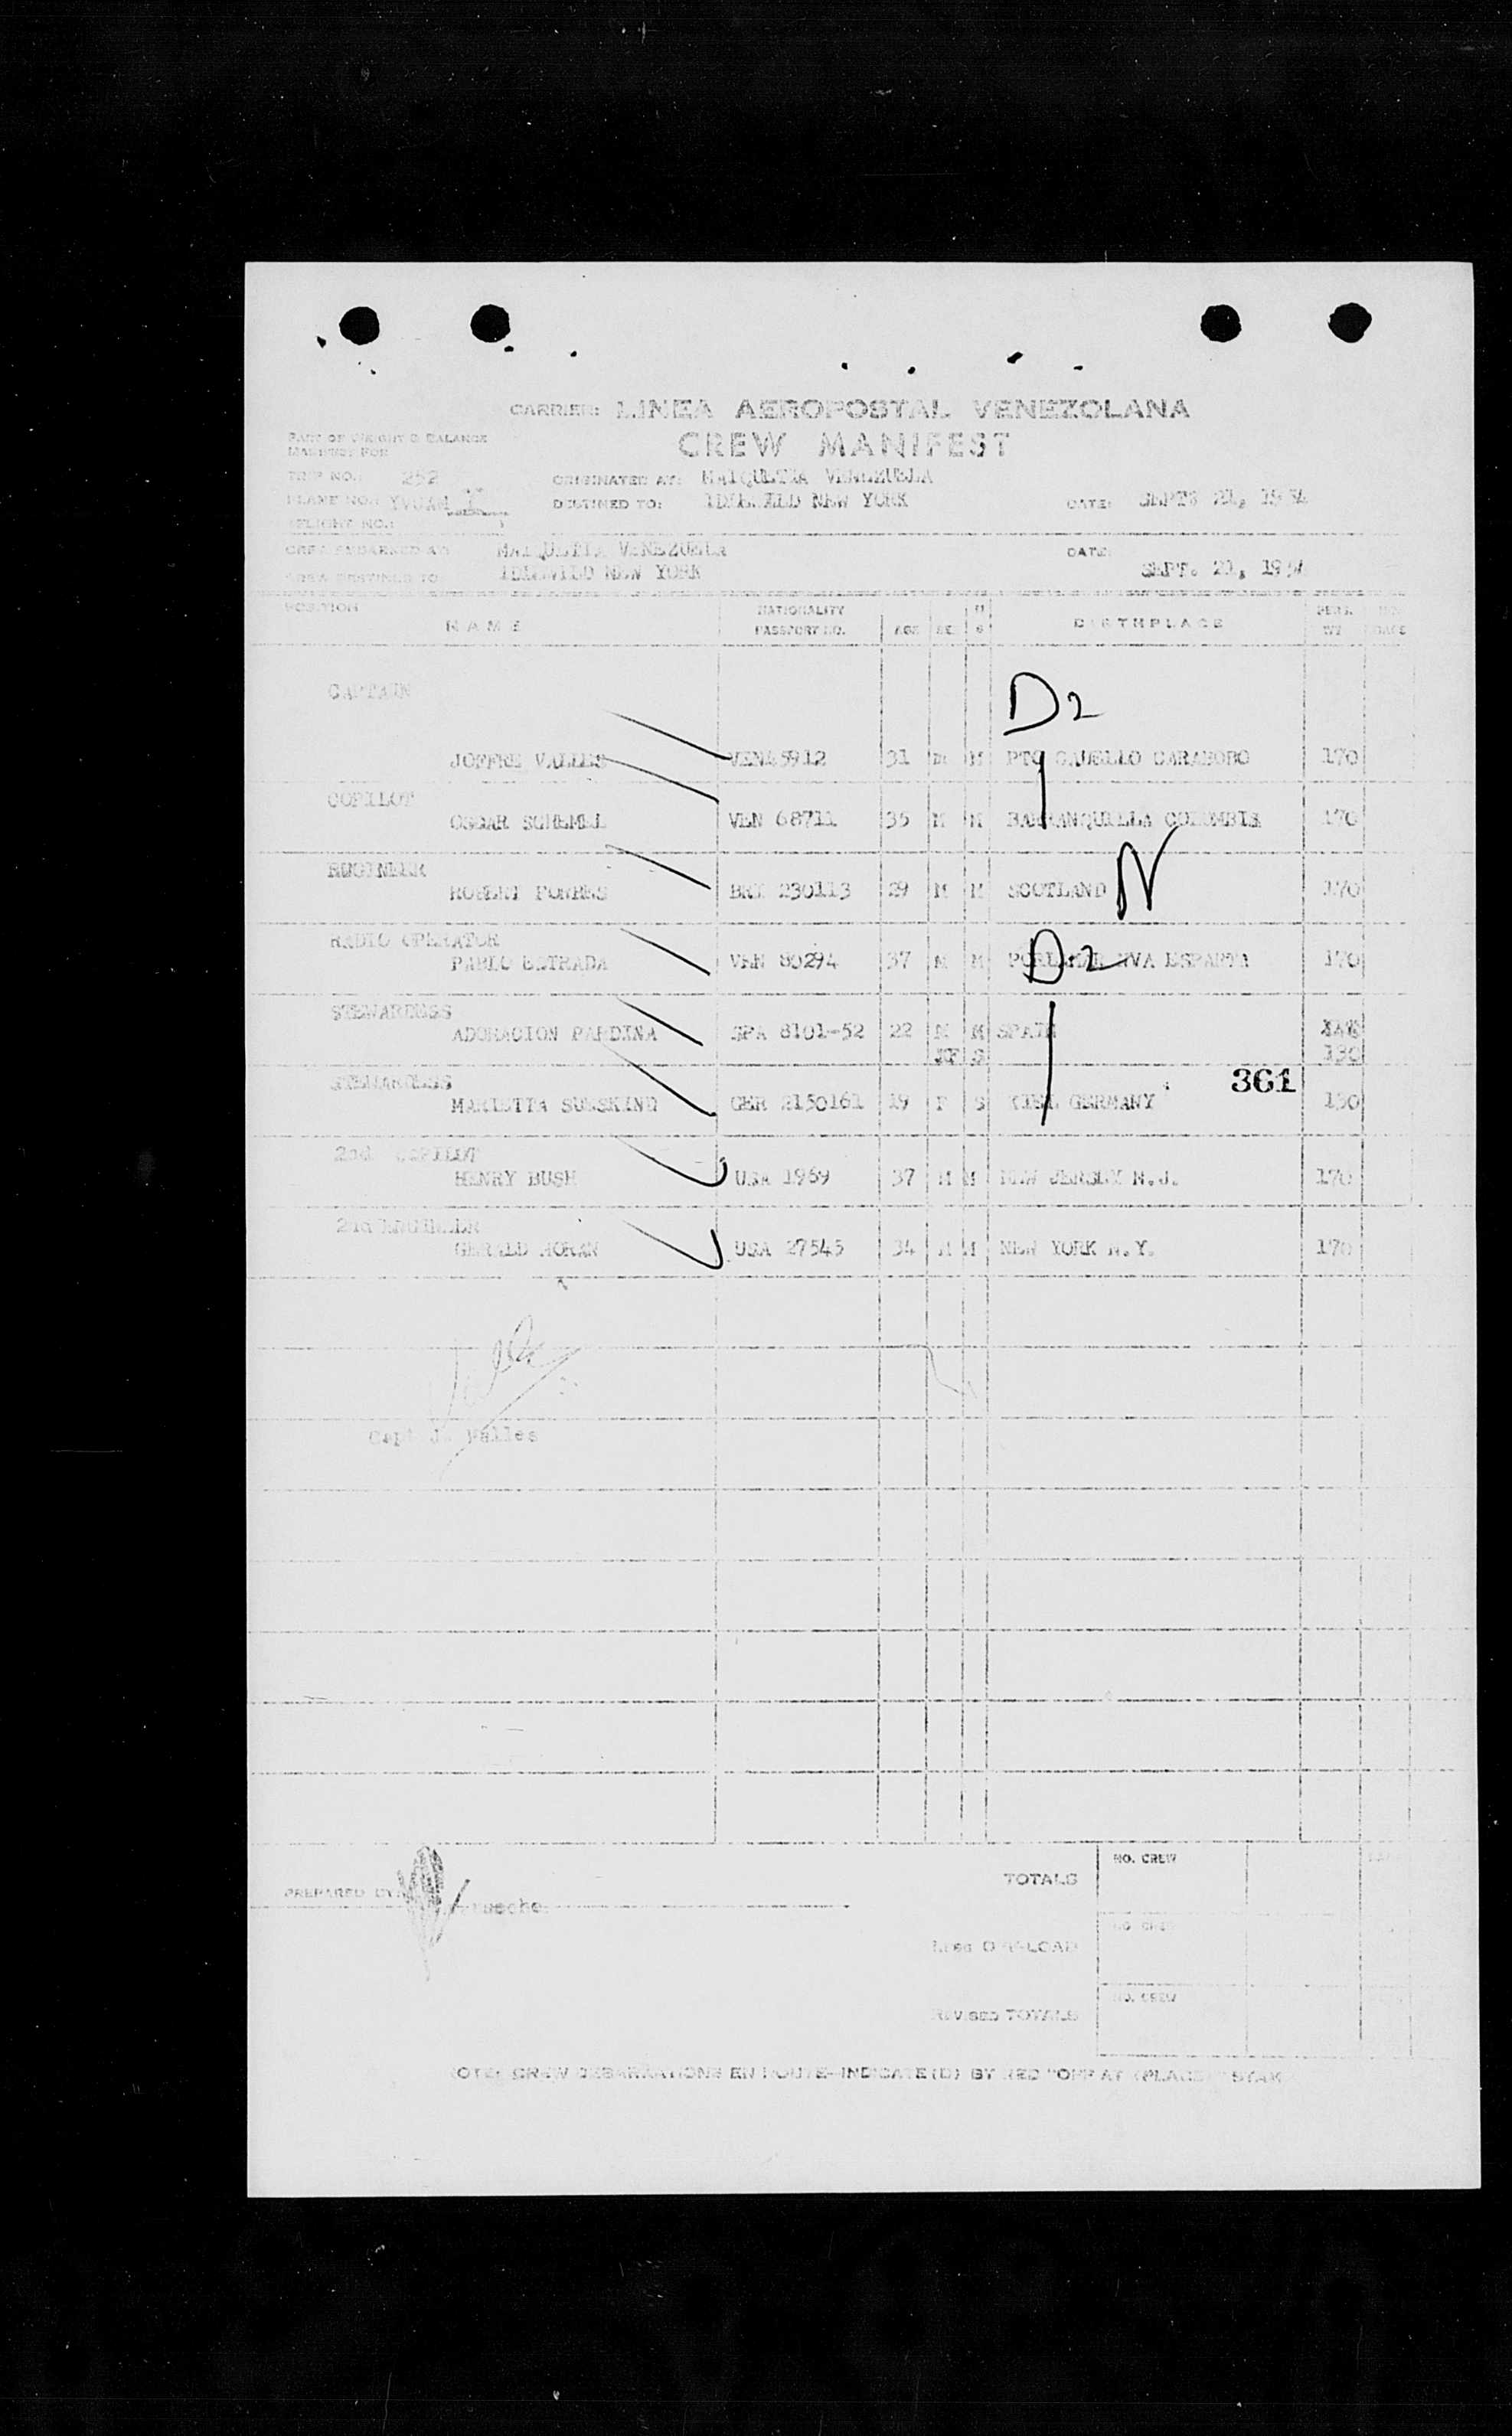 CARRIER: LINEA AEROPOSTAL VENEZOLANA
CREW MANIFEST
PART OF WEIGHT & BALANCE
MANIFEST FOR
TRIP NO.: 252
ORIGINATED AT: MAIQUETIA VENEZUELA
PLANE NO.:
DESTINED TO: IDLEWILD NEW YORK
DATE: SEPTS 21, 1954
FLIGHT NO.:
CREW EMBARKED AT MAIQUETIA VENEZUELA
DATE:
CREW DESTINED TO IDLEWILD NEW YORK
SEPT. 21, 1954
POSITION
NAME
NATIONALITY
PASSPORT NO.
AGE
BIRTHPLACE
PERS.
WT
CAPTAIN
D2
JOFFRE VALLES VEN45912 31 M M PTO CABELLO CARABOBO 170
COPILOT
OSCAR SCHEMEL VEN 68711 35 M M BARRANQUILLA COLOMBIA 170
ENGINEER
ROBERT FORBES BRI 230113 29 M M SCOTLAND N 170
RADIO OPERATOR
PABLO ESTRADA VEN 80294 37 M M PORLAMAR NVA ESPARTA 170
D-2
STEWARDESS
ADORACION PARDINA SPA 8101-52 22 M M SPAIN
F S 130
STEWARDESS
361
MARIETTA SUESKIND GER 2150161 19 F S KIEL GERMANY 130
2nd COPILOT
HENRY BUSH USA 1969 37 M M NEW JERSEY N.J. 170
2nd ENGINEER
GERALD HORAN USA 27545 34 M M NEW YORK N.Y. 170
Capt J. Valles
NO. CREW
TOTALS
PREPARED BY:
NO. CREW
Less OFF-LOAD
NO. CREW
REVISED TOTALS
NOTE: CREW DEBARKATIONS EN ROUTE-INDICATE (D) BY RED "OFF AT (PLACE)" STAMP